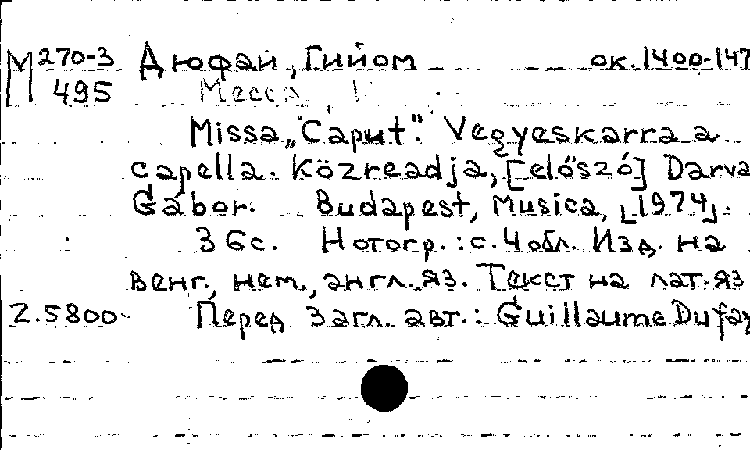 М 270-3 Дюфаи, Гийом ок. 1400-147
495 Месса
Missa „Caput". Vegyeskarra a
capella. Közreadja, [előszó] Darva
Gábor. Budapest, Musica, [1974].
36 с. Нотогр.: с. 4 обл. Изд. на
венг., нем., англ. яз. Текст на лат. яз
Z.5800 Перед загл. авт.: Guillaume Dufay